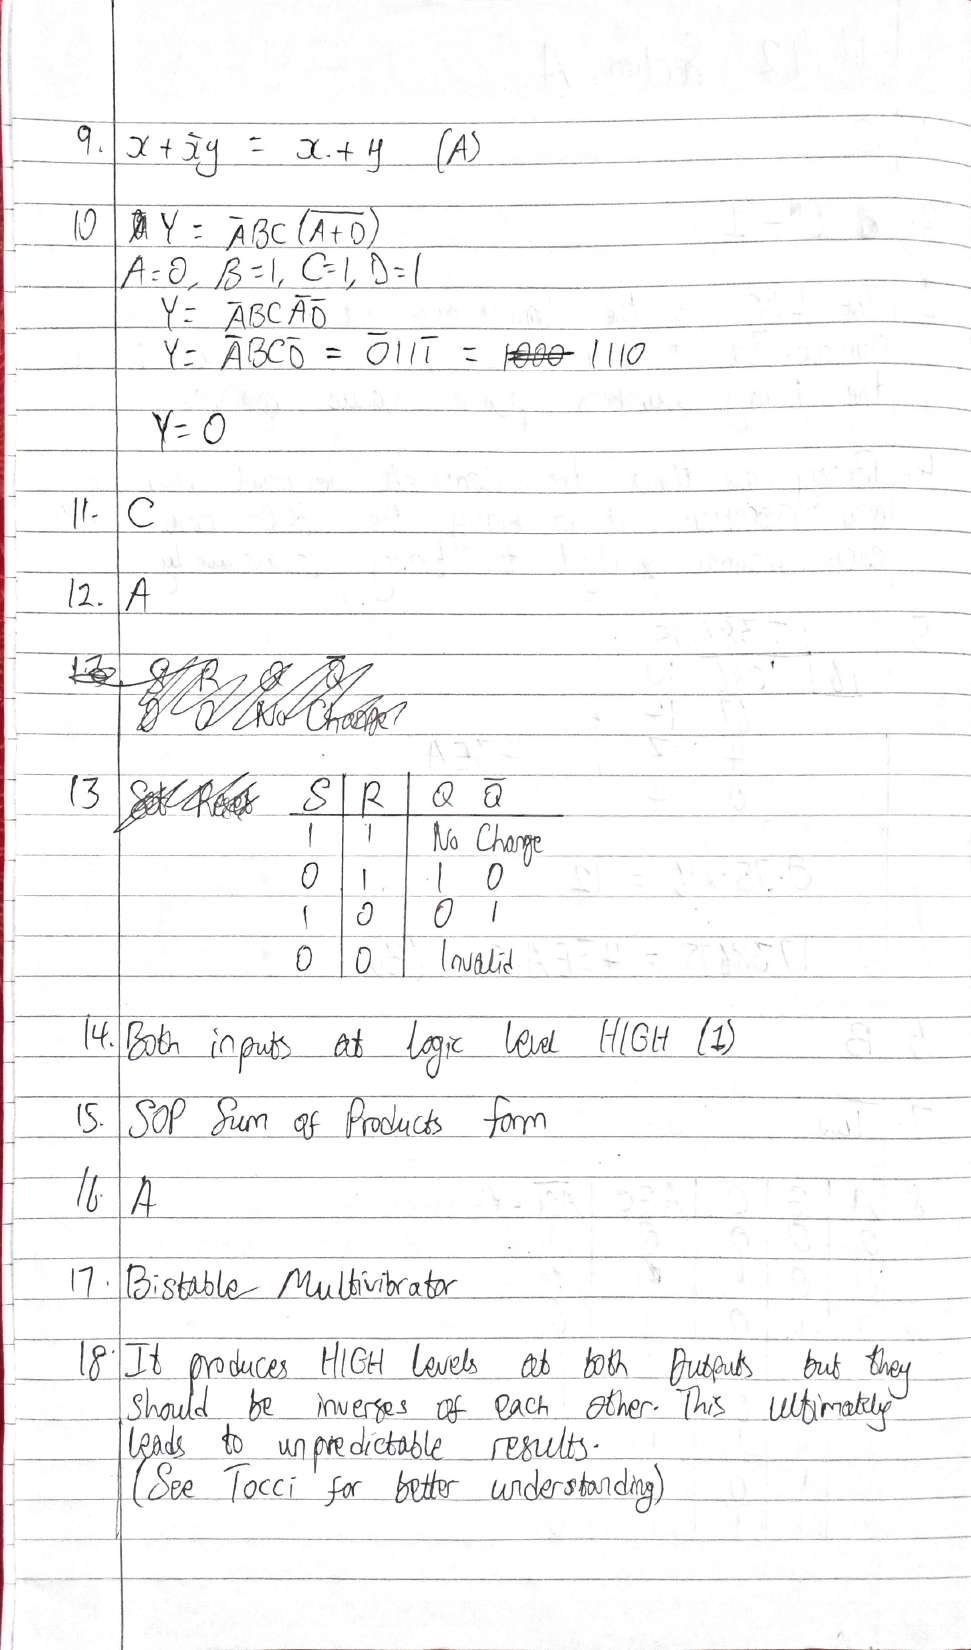 9. x + x̄y = x + y (A)
10 Y = ĀBC(\overline{A+D})
A=0, B=1, C=1, D=1
Y= ĀBCĀD̄
Y= ĀBCD̄ = 0̄111̄ = 1000 1110
Y=0
11. C
12. A
13. S R Q Q̄
0 0 No Change
13 Set Reset S R Q Q̄
1 1 No Change
0 1 1 0
1 0 0 1
0 0 Invalid
14. Both inputs at logic level HIGH (1)
15. SOP Sum of Products form
16 A
17. Bistable Multivibrator
18. It produces HIGH levels at both outputs but they
should be inverses of each other. This ultimately
leads to unpredictable results.
(See Tocci for better understanding)